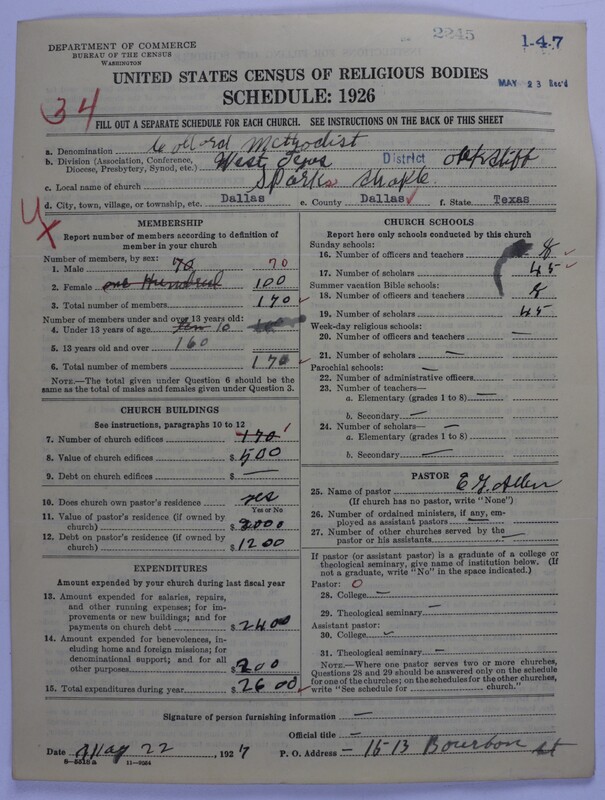 2245
1-4-7
DEPARTMENT OF COMMERCE
BUREAU OF THE CENSUS
WASHINGTON
MAY 23 Rec'd
UNITED STATES CENSUS OF RELIGIOUS BODIES
SCHEDULE: 1926
34
FILL OUT A SEPARATE SCHEDULE FOR EACH CHURCH. SEE INSTRUCTIONS ON THE BACK OF THIS SHEET
a. Denomination Methodist
b. Division (Association, Conference, Diocese, Presbytery, Synod, etc.) West Texas District
c. Local name of church Sparks
d. City, town, village, or township, etc. Dallas e. County Dallas f. State Texas
MEMBERSHIP
Report number of members according to definition of
member in your church
Number of members, by sex:
1. Male 70 70
2. Female one Hundred 100
3. Total number of members 170
Number of members under and over 13 years old:
4. Under 13 years of age Ten 10
5. 13 years old and over 160
6. Total number of members 170
NOTE.—The total given under Question 6 should be the
same as the total of males and females given under Question 3.
CHURCH BUILDINGS
See instructions, paragraphs 10 to 12
7. Number of church edifices 170 1
8. Value of church edifices $ 500
9. Debt on church edifices $ —
10. Does church own pastor's residence yes
Yes or No
11. Value of pastor's residence (if owned by
church) $ 2000
12. Debt on pastor's residence (if owned by
church) $ 1200
EXPENDITURES
Amount expended by your church during last fiscal year
13. Amount expended for salaries, repairs,
and other running expenses; for im-
provements or new buildings; and for
payments on church debt $ 2400
14. Amount expended for benevolences, in-
cluding home and foreign missions; for
denominational support; and for all
other purposes $ 200
15. Total expenditures during year $ 2600
CHURCH SCHOOLS
Report here only schools conducted by this church
Sunday schools:
16. Number of officers and teachers 8
17. Number of scholars 45
Summer vacation Bible schools:
18. Number of officers and teachers 8
19. Number of scholars 45
Week-day religious schools:
20. Number of officers and teachers —
21. Number of scholars —
Parochial schools: —
22. Number of administrative officers
23. Number of teachers—
a. Elementary (grades 1 to 8) —
b. Secondary —
24. Number of scholars— —
a. Elementary (grades 1 to 8) —
b. Secondary —
PASTOR
25. Name of pastor E G. Allen
(If church has no pastor, write "None")
26. Number of ordained ministers, if any, em-
ployed as assistant pastors —
27. Number of other churches served by the
pastor or his assistants —
If pastor (or assistant pastor) is a graduate of a college or
theological seminary, give name of institution below. (If
not a graduate, write "No" in the space indicated.)
Pastor: O
28. College —
29. Theological seminary —
Assistant pastor:
30. College —
31. Theological seminary —
NOTE.—Where one pastor serves two or more churches,
Questions 28 and 29 should be answered only on the schedule
for one of the churches; on the schedules for the other churches,
write "See schedule for ________ church."
Signature of person furnishing information —
Official title —
Date May 22, 1927 P. O. Address — 1513 Bourbon st
8—5318 a 11—9054